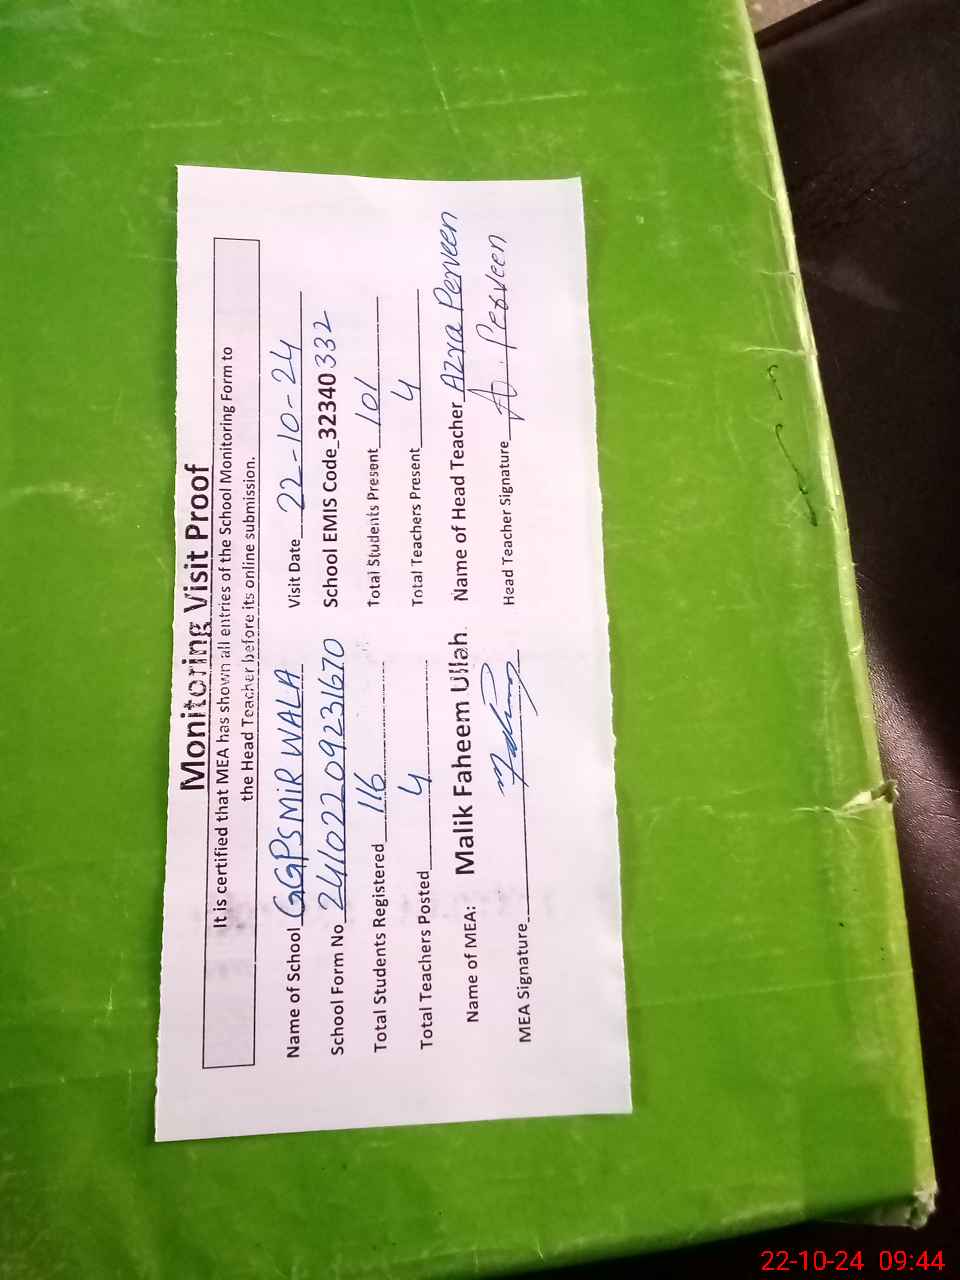 Monitoring Visit Proof
It is certified that MEA has shown all entries of the School Monitoring Form to
the Head Teacher before its online submission.
Name of School GGPS MiR WALA Visit Date 22-10-24
School Form No 24102209231670 School EMIS Code_32340332
Total Students Registered 116 Total Students Present 101
Total Teachers Posted 4 Total Teachers Present 4
Name of MEA: Malik Faheem Ullah Name of Head Teacher Azra Perveen
MEA Signature Head Teacher Signature A. Perveen
22-10-24 09:44